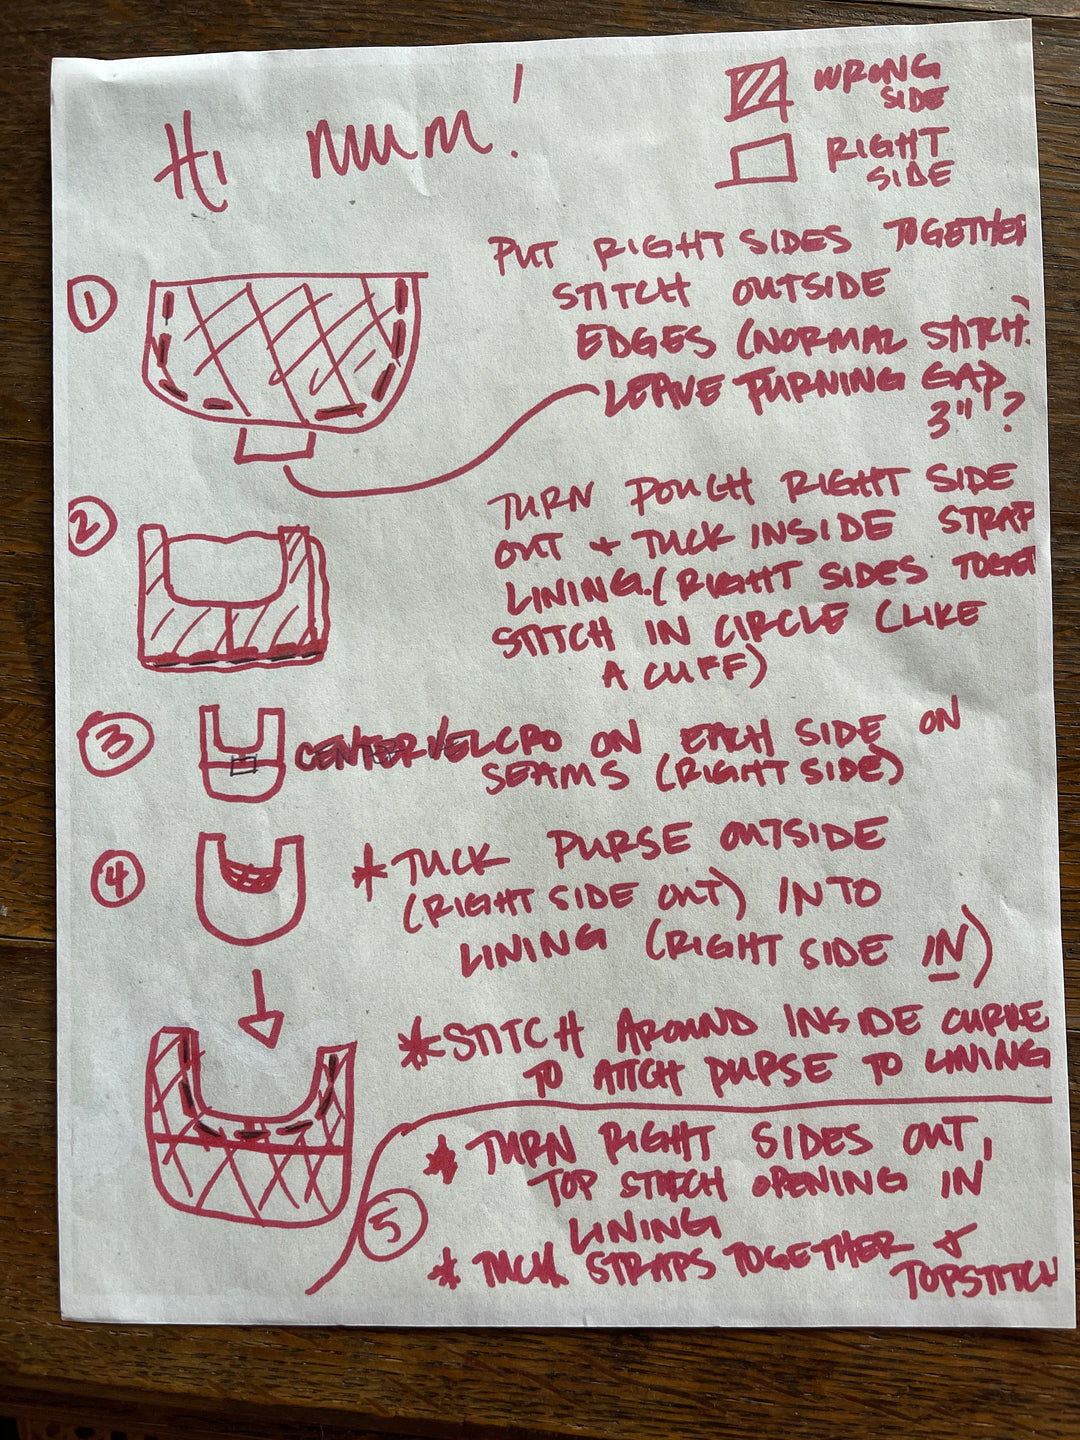 Hi mum!
WRONG
SIDE
RIGHT
SIDE
1
PUT RIGHT SIDES TOGETHER
STITCH OUTSIDE
EDGES (NORMAL STITCH.)
LEAVE TURNING GAP,
3"?
2
TURN POUCH RIGHT SIDE
OUT + TUCK INSIDE STRAP
LINING. (RIGHT SIDES TOGET
STITCH IN CIRCLE (LIKE
A CUFF)
3
CENTER VELCRO ON EACH SIDE ON
SEAMS (RIGHT SIDE)
4
* TUCK PURSE OUTSIDE
(RIGHT SIDE OUT) INTO
LINING (RIGHT SIDE IN)
* STITCH AROUND INSIDE CURVE
TO ATTCH PURSE TO LINING
5
* TURN RIGHT SIDES OUT,
TOP STITCH OPENING IN
LINING
* TUCK STRAPS TOGETHER +
TOPSTITCH